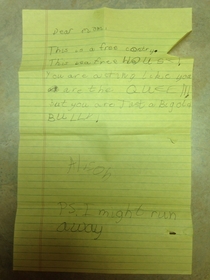 Dear
This is a free country.
This is a free HOUSE!
You are acting like you
are the QUEEN
but you are Just a Big old
BULLy!
Alison
PS. I might run
away